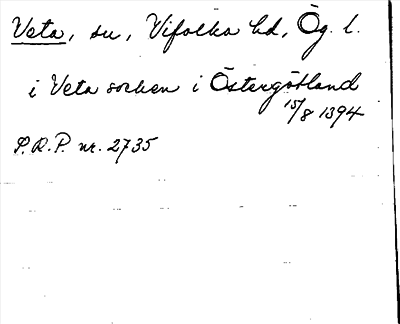 Veta, sn, Vifolka hd, Ög. l.
i Veta socken i Östergötland
15/8 1394
S.R.P. nr. 2735